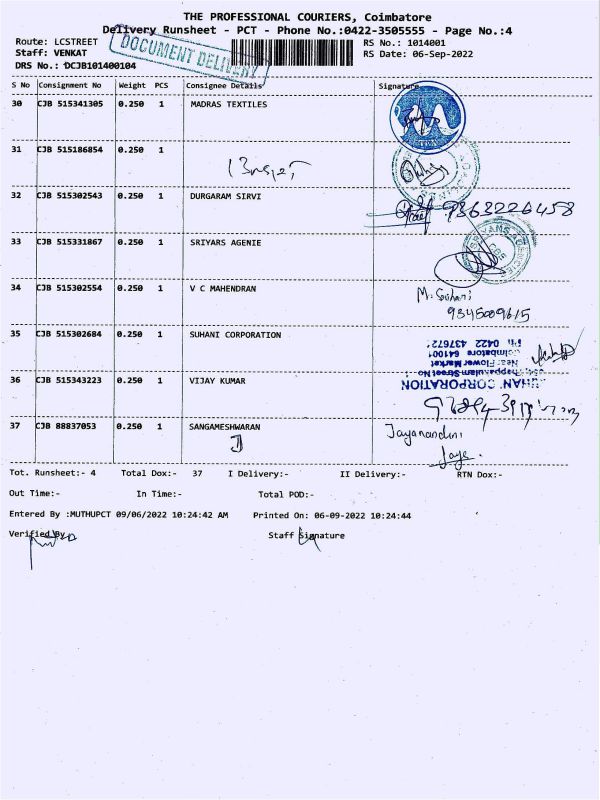 THE PROFESSIONAL COURIERS, Coimbatore
Delivery Runsheet - PCT - Phone No.:0422-3505555 - Page No.:4
Route: LCSTREET
Staff: VENKAT
DRS No.: DCJB101400104
DOCUMENT DELIVERY
RS No.: 1014001
RS Date: 06-Sep-2022
S No Consignment No Weight PCS Consignee Details Signature
30 CJB 515341305 0.250 1 MADRAS TEXTILES
TEX
31 CJB 515186854 0.250 1
32 CJB 515302543 0.250 1 DURGARAM SIRVI 9363226458
33 CJB 515331867 0.250 1 SRIYARS AGENIE
CBE
34 CJB 515302554 0.250 1 V C MAHENDRAN
9345009615
35 CJB 515302684 0.250 1 SUHANI CORPORATION
PH 0422 437672
Coimbatore 641001
Near Flower Market
Thappakulam Street No
CORPORATION
36 CJB 515343223 0.250 1 VIJAY KUMAR
37 CJB 88837053 0.250 1 SANGAMESHWARAN Jayanandini
Jaye.
Tot. Runsheet:- 4 Total Dox:- 37 I Delivery:- II Delivery:- RTN Dox:-
Out Time:- In Time:- Total POD:-
Entered By :MUTHUPCT 09/06/2022 10:24:42 AM Printed On: 06-09-2022 10:24:44
Verified By Staff Signature